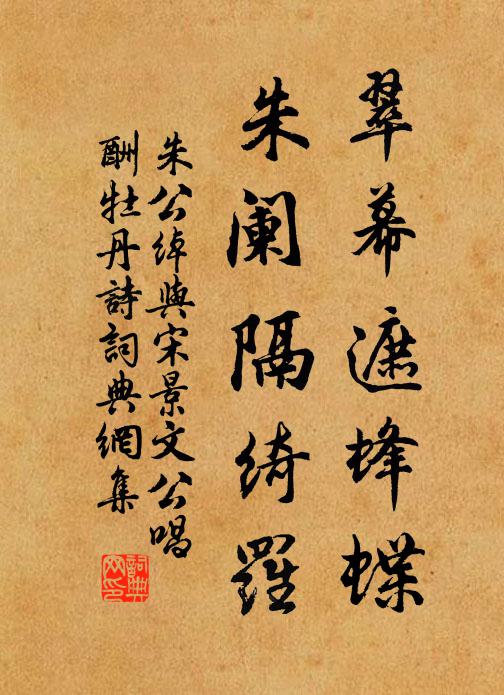 翠幕遮蜂蝶
朱阑隔绮羅
朱公绰與宋景文公唱
酬牡丹詩詞典網集
詞典網印